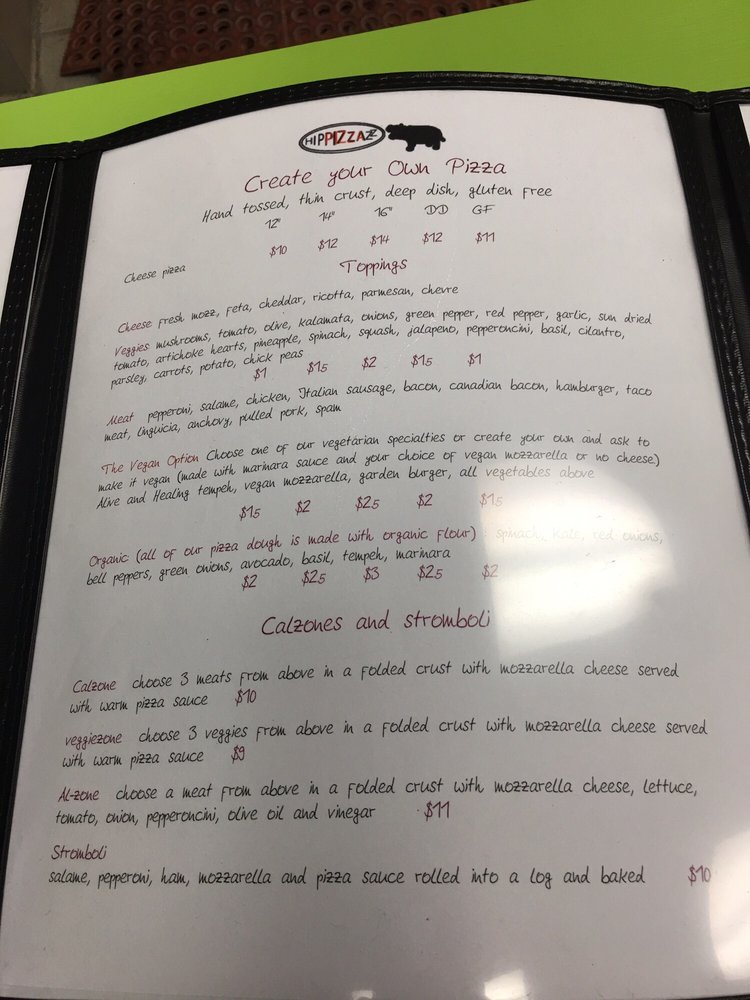 HIPPIZZAZZ
Create your Own Pizza
Hand tossed, thin crust, deep dish, gluten free
12" 14" 16" DD GF
Cheese pizza $10 $12 $14 $12 $11
Toppings
Cheese fresh mozz, feta, cheddar, ricotta, parmesan, chevre
Veggies mushrooms, tomato, olive, kalamata, onions, green pepper, red pepper, garlic, sun dried
tomato, artichoke hearts, pineapple, spinach, squash, jalapeno, pepperoncini, basil, cilantro,
parsley, carrots, potato, chick peas
$1 $1.5 $2 $1.5 $1
Meat pepperoni, salame, chicken, Italian sausage, bacon, canadian bacon, hamburger, taco
meat, linguicia, anchovy, pulled pork, spam
The Vegan Option Choose one of our vegetarian specialties or create your own and ask to
make it vegan (made with marinara sauce and your choice of vegan mozzarella or no cheese)
Alive and Healing tempeh, vegan mozzarella, garden burger, all vegetables above
$1.5 $2 $2.5 $2 $1.5
Organic (all of our pizza dough is made with organic flour) : spinach, kale, red onions,
bell peppers, green onions, avocado, basil, tempeh, marinara
$2 $2.5 $3 $2.5 $2
Calzones and stromboli
Calzone choose 3 meats from above in a folded crust with mozzarella cheese served
with warm pizza sauce $10
veggiezone choose 3 veggies from above in a folded crust with mozzarella cheese served
with warm pizza sauce $9
Al-zone choose a meat from above in a folded crust with mozzarella cheese, lettuce,
tomato, onion, pepperoncini, olive oil and vinegar $11
Stromboli
salame, pepperoni, ham, mozzarella and pizza sauce rolled into a log and baked $10